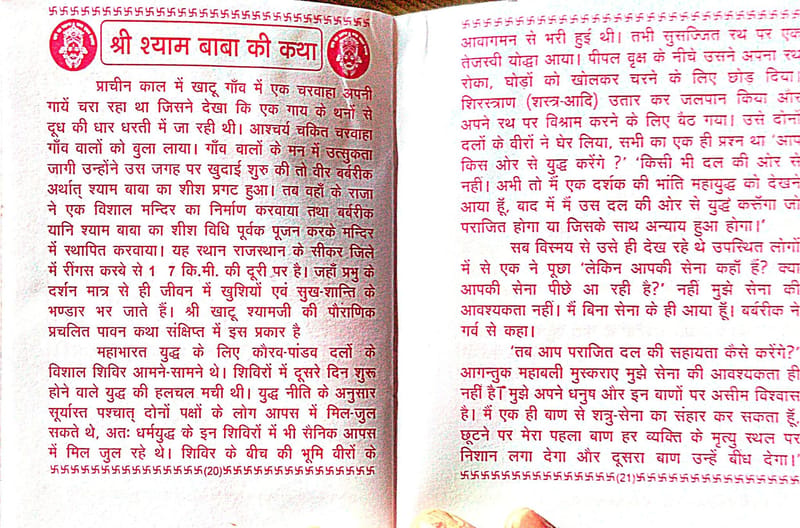 श्री श्याम बाबा की कथा
प्राचीन काल में खाटू गाँव में एक चरवाहा अपनी
गायें चरा रहा था जिसने देखा कि एक गाय के थनों से
दूध की धार धरती में जा रही थी। आश्चर्य चकित चरवाहा
गाँव वालों को बुला लाया। गाँव वालों के मन में उत्सुकता
जागी उन्होंने उस जगह पर खुदाई शुरु की तो वीर बर्बरीक
अर्थात् श्याम बाबा का शीश प्रगट हुआ। तब वहाँ के राजा
ने एक विशाल मन्दिर का निर्माण करवाया तथा बर्बरीक
यानि श्याम बाबा का शीश विधि पूर्वक पूजन करके मन्दिर
में स्थापित करवाया। यह स्थान राजस्थान के सीकर जिले
में रींगस कस्वे से 1 7 कि.मी. की दूरी पर है। जहाँ प्रभु के
दर्शन मात्र से ही जीवन में खुशियों एवं सुख-शान्ति के
भण्डार भर जाते हैं। श्री खाटू श्यामजी की पौराणिक
प्रचलित पावन कथा संक्षिप्त में इस प्रकार है
महाभारत युद्ध के लिए कौरव-पांडव दलों के
विशाल शिविर आमने-सामने थे। शिविरों में दूसरे दिन शुरू
होने वाले युद्ध की हलचल मची थी। युद्ध नीति के अनुसार
सूर्यास्त पश्चात् दोनों पक्षों के लोग आपस में मिल-जुल
सकते थे, अतः धर्मयुद्ध के इन शिविरों में भी सैनिक आपस
में मिल जुल रहे थे। शिविर के बीच की भूमि वीरों के
(20)
आवागमन से भरी हुई थी। तभी सुसज्जित रथ पर एक
तेजस्वी योद्धा आया। पीपल वृक्ष के नीचे उसने अपना रथ
रोका, घोड़ों को खोलकर चरने के लिए छोड़ दिया।
शिरस्त्राण (शस्त्र-आदि) उतार कर जलपान किया और
अपने रथ पर विश्राम करने के लिए बैठ गया। उसे दोनों
दलों के वीरों ने घेर लिया, सभी का एक ही प्रश्न था 'आप
किस ओर से युद्ध करेंगे ?' 'किसी भी दल की ओर से
नहीं। अभी तो मैं एक दर्शक की भांति महायुद्ध को देखने
आया हूँ, बाद में मैं उस दल की ओर से युद्ध करूँगा जो
पराजित होगा या जिसके साथ अन्याय हुआ होगा।'
सब विस्मय से उसे ही देख रहे थे उपस्थित लोगों
में से एक ने पूछा 'लेकिन आपकी सेना कहाँ हैं? क्या
आपकी सेना पीछे आ रही है?' नहीं मुझे सेना की
आवश्यकता नहीं। मैं बिना सेना के ही आया हूँ। बर्बरीक ने
गर्व से कहा।
'तब आप पराजित दल की सहायता कैसे करेंगे?'
आगन्तुक महाबली मुस्कराए मुझे सेना की आवश्यकता ही
नहीं है। मुझे अपने धनुष और इन बाणों पर असीम विश्वास
है। मैं एक ही बाण से शत्रु-सेना का संहार कर सकता हूँ,
छूटने पर मेरा पहला बाण हर व्यक्ति के मृत्यु स्थल पर
निशान लगा देगा और दूसरा बाण उन्हें बीध देगा।'
(21)